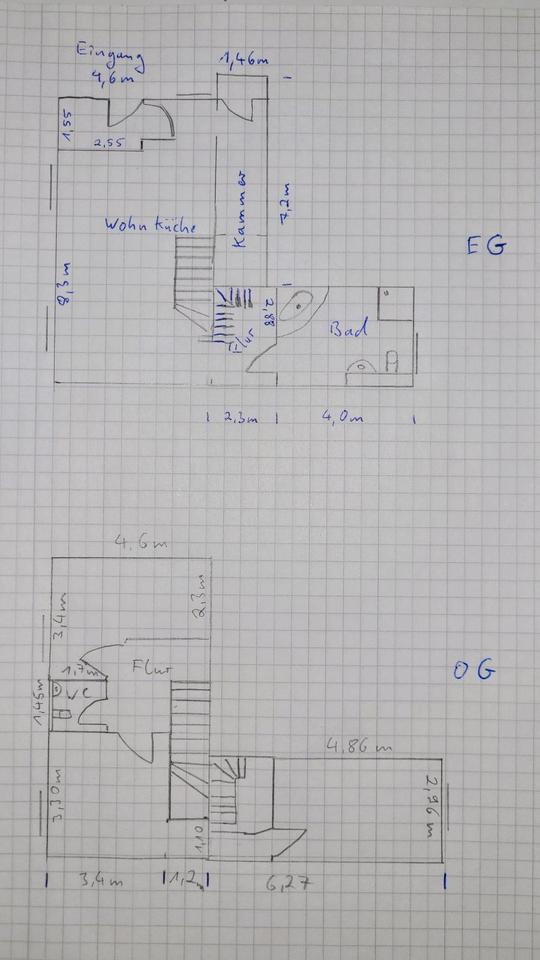 Eingang
4,6m
1,46m
1,55
2,55
Wohn Küche
Kammer
7,2m
EG
8,3m
2,88
Flur
Bad
2,3m
4,0m
4.6m
3,4m
2,3m
Flur
OG
1,7m
1,45m
4,86m
3,30m
1,10
2,96m
3,4m
1,2m
6,27